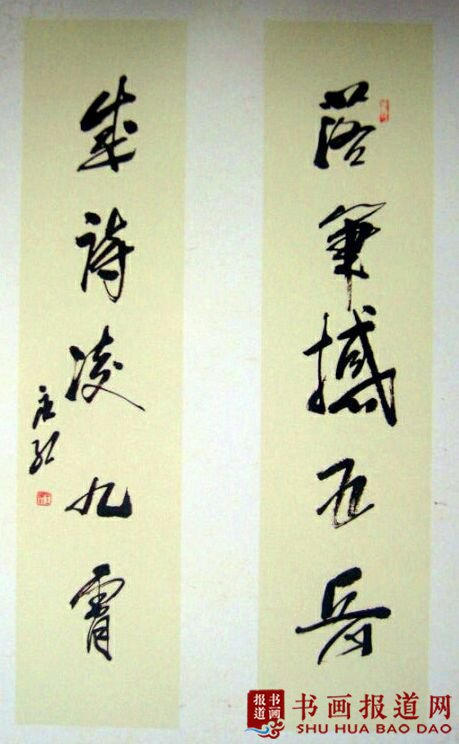 落筆撼五岳
成詩凌九霄
唐弘
书画报道
书画报道网
SHU HUA BAO DAO